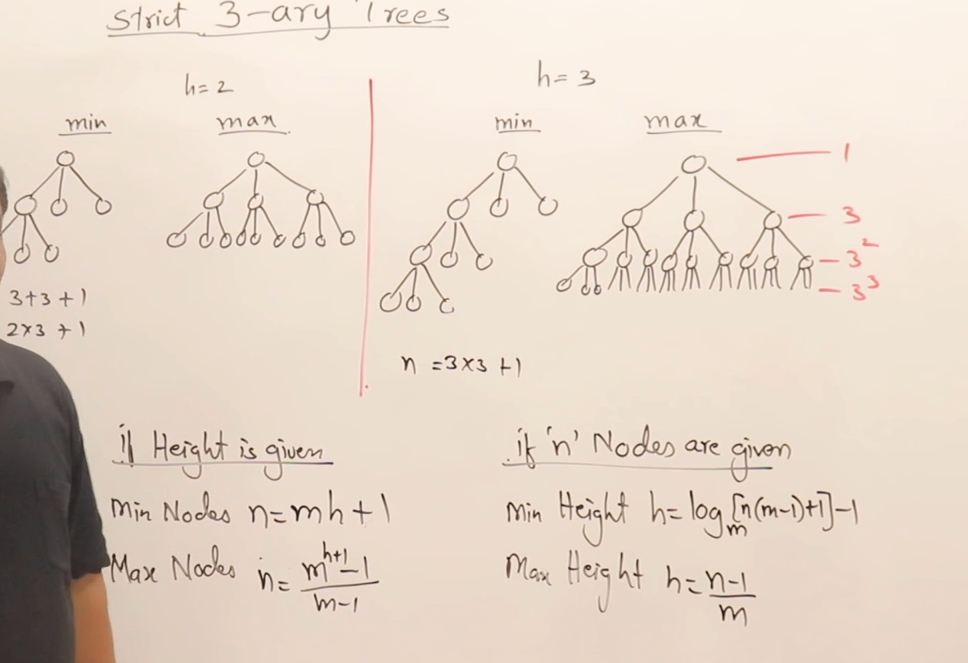 Strict 3-ary Trees
h=2
min
max
3+3+1
2×3+1
h=3
min
max
1
3
3²
3³
n=3×3+1
if Height is given
Min Nodes n=mh+1
Max Nodes n=(m^(h+1)-1)/(m-1)
if 'n' Nodes are given
Min Height h=logₘ[n(m-1)+1]-1
Max Height h=(n-1)/m